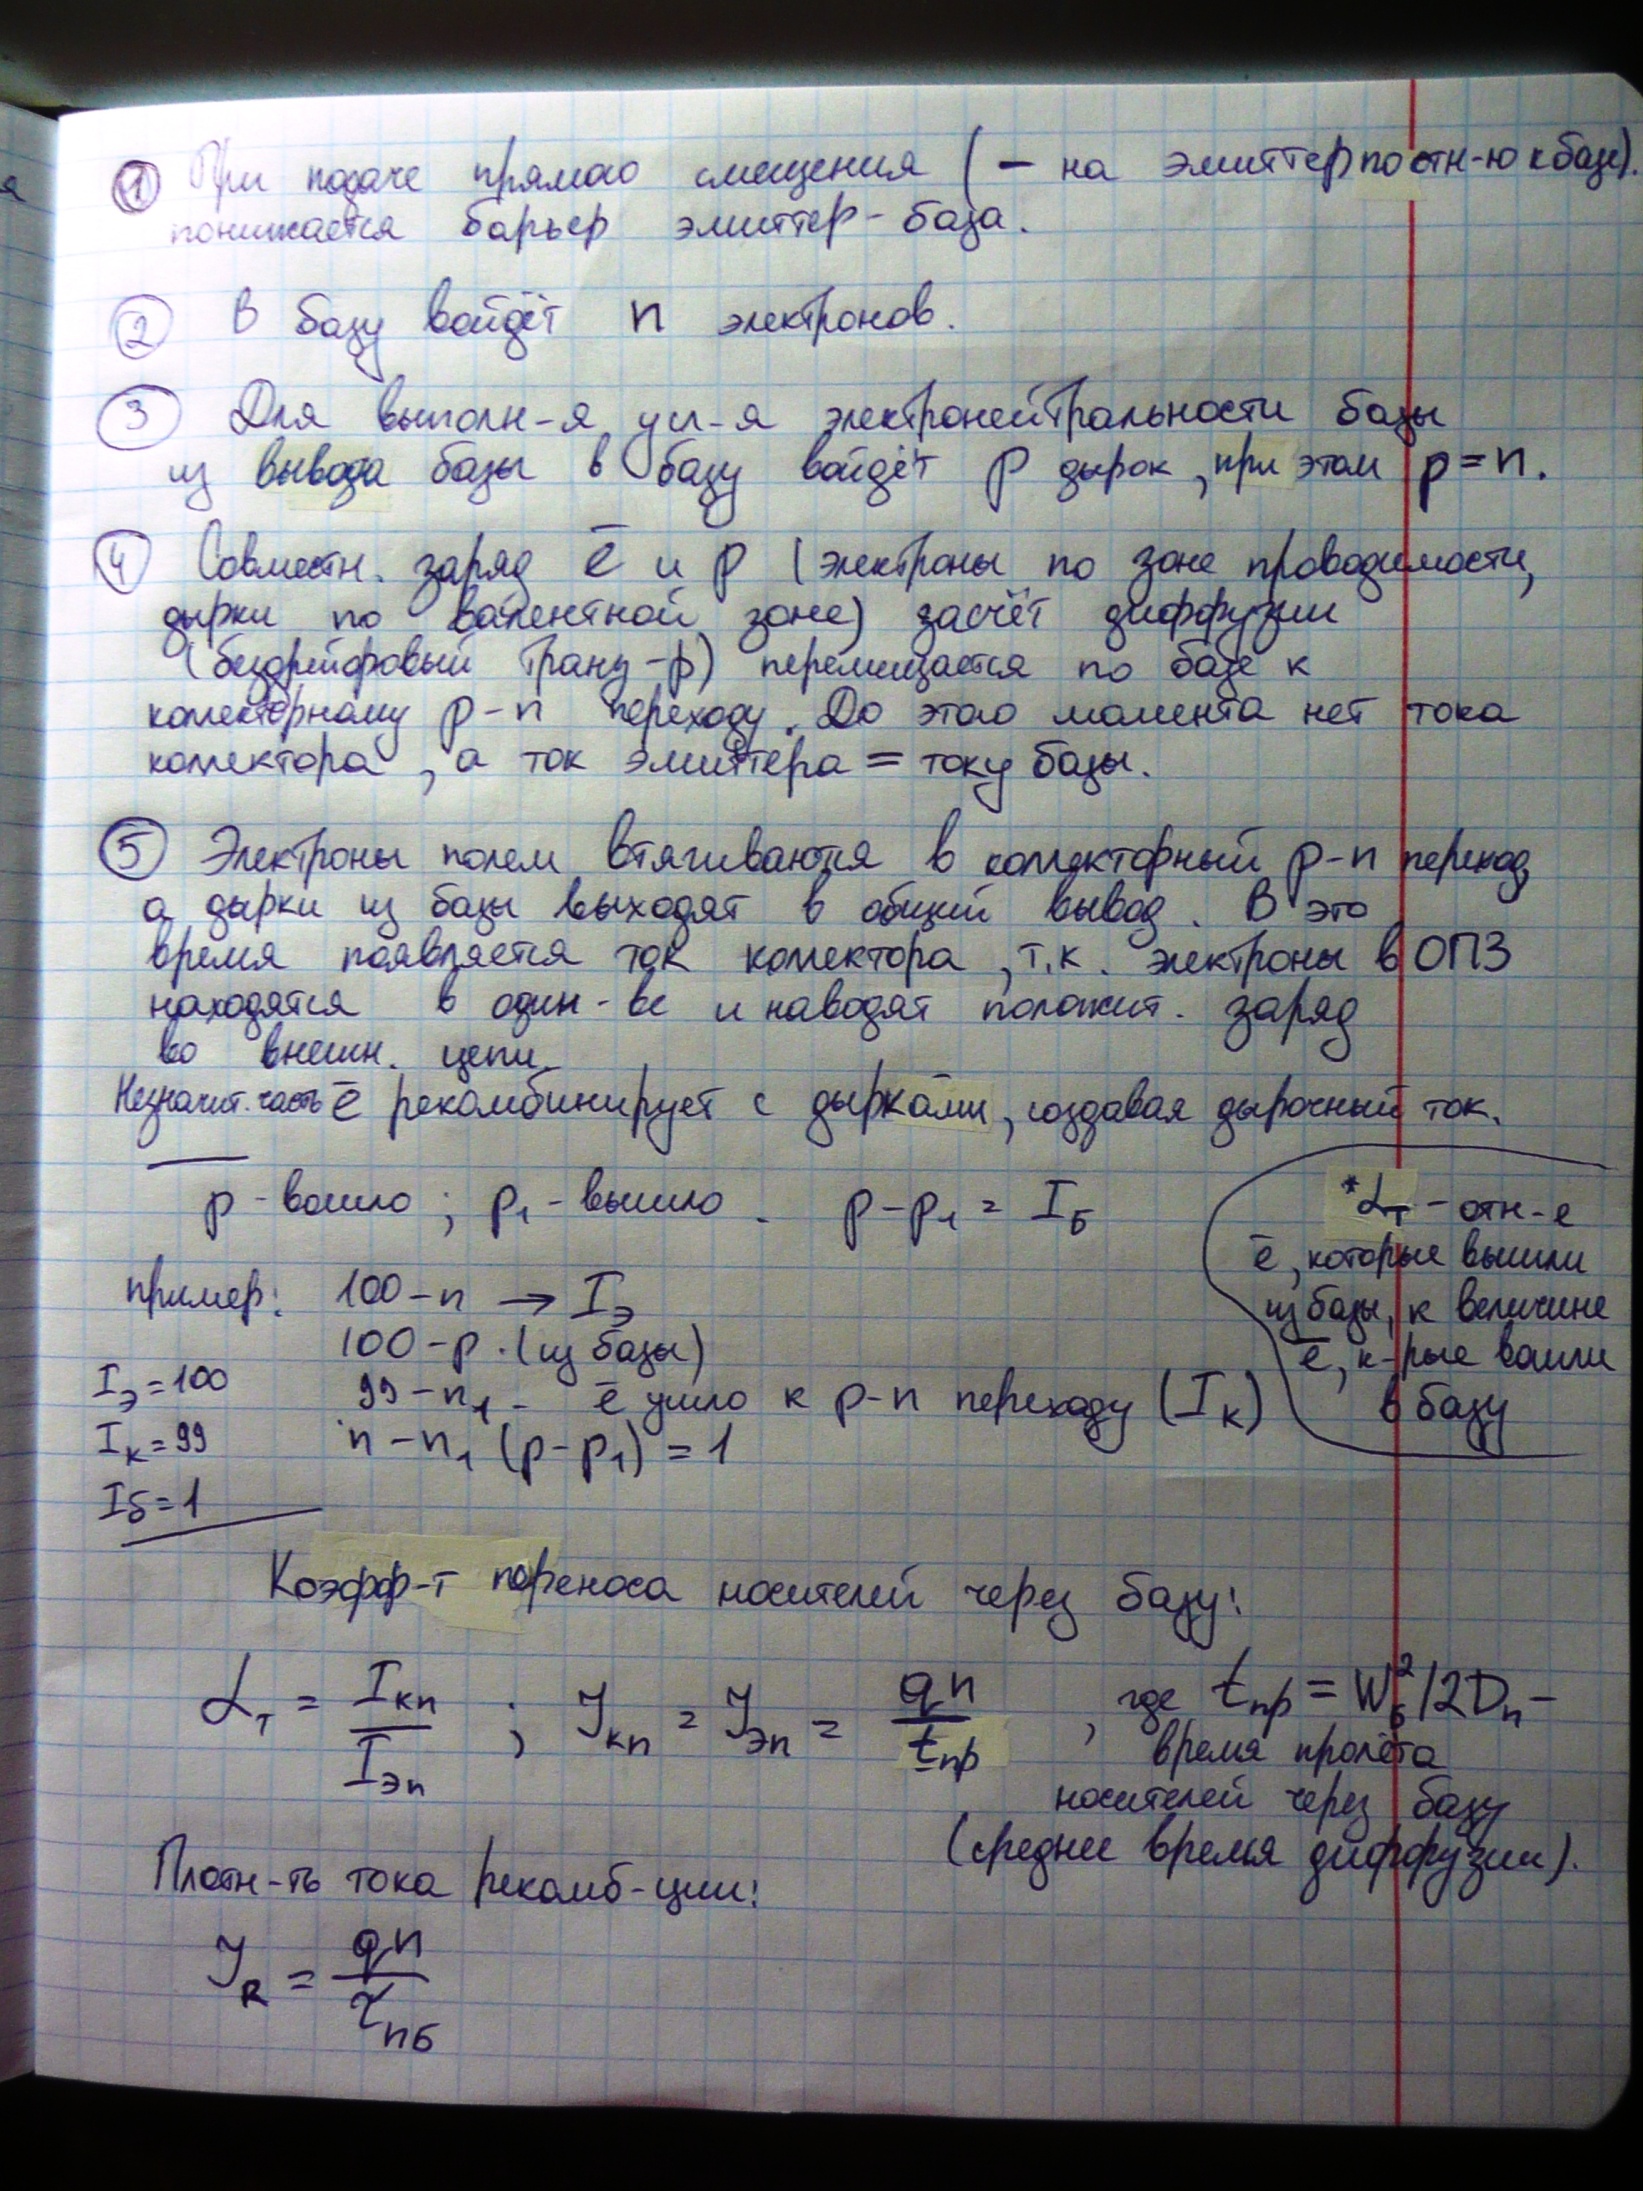 ① При подаче прямого смещения (– на эмиттер по отн-ю к базе).
понижается барьер эмиттер-база.
② В базу войдёт n электронов.
③ Для выполн-я усл-я электронейтральности базы
из вывода базы в базу войдёт p дырок, при этом p=n.
④ Совместн. заряд ē и p (электроны по зоне проводимости,
дырки по валентной зоне) засчёт диффузии
(бездрейфовый транз-р) перемещается по базе к
коллекторному p-n переходу. До этого момента нет тока
коллектора, а ток эмиттера = току базы.
⑤ Электроны полем втягиваются в коллекторный p-n переход,
а дырки из базы выходят в общий вывод. В это
время появляется ток коллектора, т.к. электроны в ОПЗ
находятся в один-ве и наводят положит. заряд
во внешн. цепи.
Незначит. часть ē рекомбинирует с дырками, создавая дырочный ток.
p - вошло; p₁ - вышло. p-p₁ = I_Б
*α_T - отн-е
ē, которые вышли
из базы, к величине
ē, к-рые вошли
в базу
пример: 100-n → I_Э
100-p. (из базы)
I_Э=100
99-n₁ - ē ушло к p-n переходу (I_К)
I_К=99
n-n₁ (p-p₁) = 1
I_Б=1
Коэфф-т переноса носителей через базу:
α_T = I_Кn / I_Эn ; J_Кn = J_Эn = qn / t_пр , где t_пр = W_Б²/2D_n -
время пролёта
носителей через базу
(среднее время диффузии).
Плотн-ть тока рекомб-ции:
J_R = qn / τ_nБ